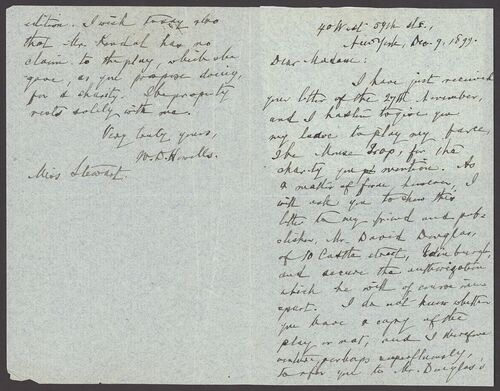 40 West 59th st.,
New York, Dec. 9, 1899.
Dear Madame:
I have just received
your letter of the 29th November,
and I hasten to give you
my leave to play my farce,
The Mouse Trap, for the
charity you mention. As
a matter of form, however, I
will ask you to show this
letter to my friend and pub-
lisher, Mr. David Douglas,
of 10 Castle street, Edinburgh,
and secure the authorization
which he will of course
grant. I do not know whether
you have a copy of the
play or not, and I therefore
venture, perhaps superfluously,
to refer you to Mr. Douglas's
edition. I wish to say also
that Mr. Kendal has no
claim to the play, which she
gave, as you propose doing,
for a charity. The property
rests solely with me.
Very truly yours,
W. D. Howells.
Miss Stewart.